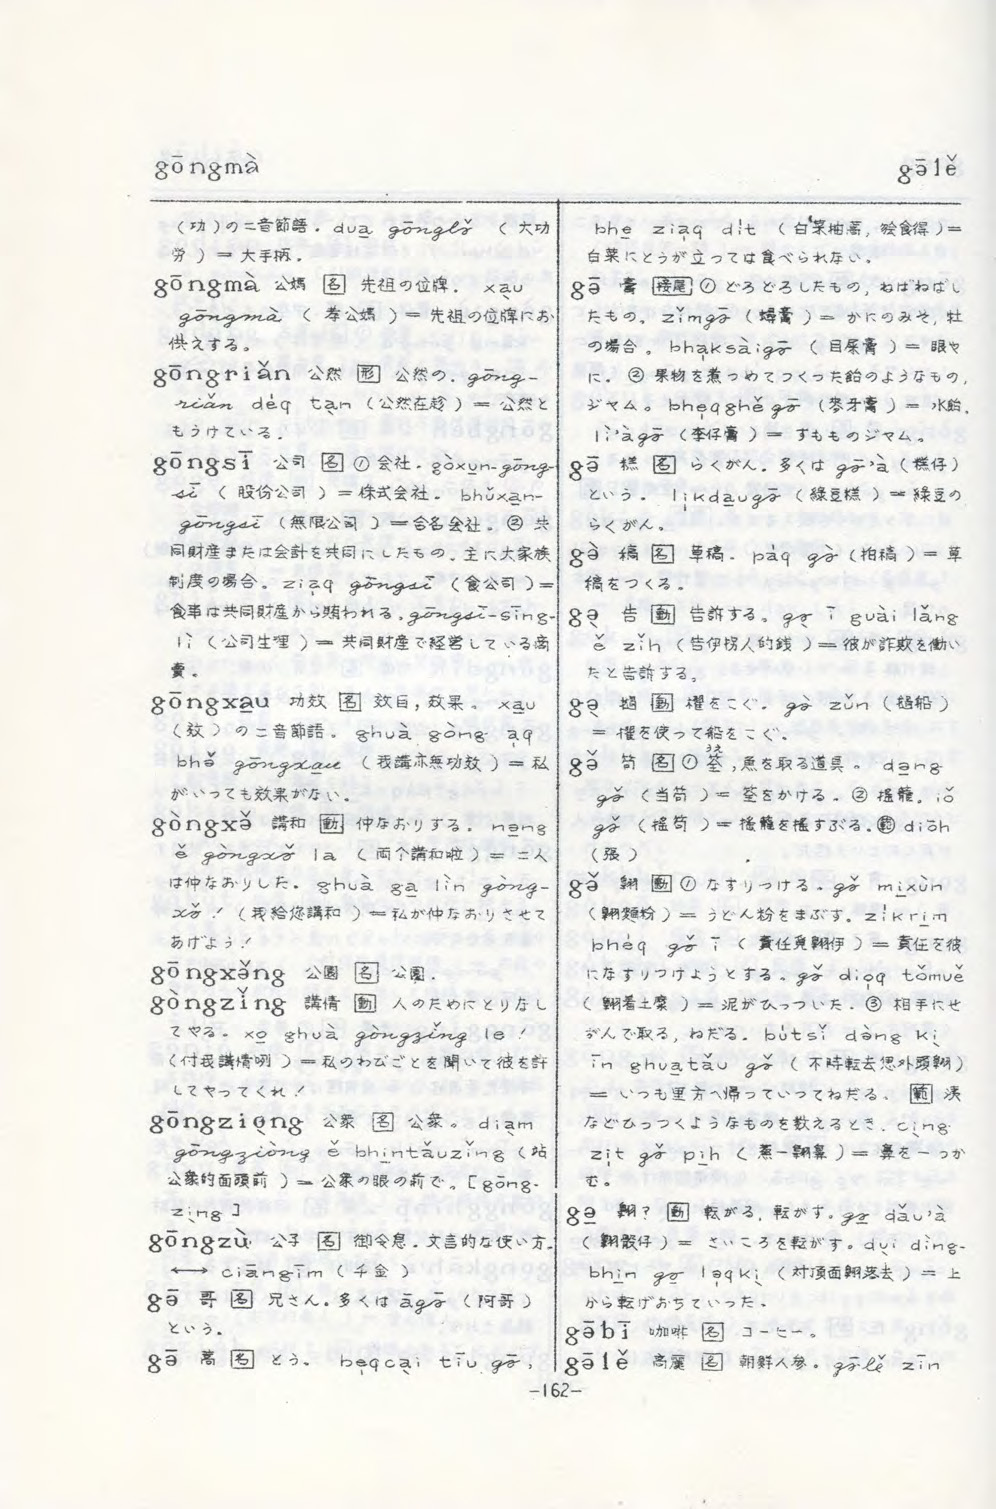 gōngmà
gə̄lě
(功)の二音節語. dua̱ gōnglə̌ ( 大功
労 ) = 大手柄.
gōngmà 公媽 名 先祖の位牌. xa̱u
gōngmà ( 孝公媽 ) = 先祖の位牌にお
供えする.
gōngriǎn 公然 形 公然の. gōng-
riǎn dẹ́q ta̱n (公然在趁) = 公然と
もうけている.
gōngsī 公司 名 ① 会社. goxu̱n-gōng-
sī ( 股份公司 ) = 株式会社. bhǔxa̱n-
gōngsī (無限公司 ) = 合名会社。② 共
同財産または会計を共同にしたもの. 主に大家族
制度の場合。ziạq gōngsī (食公司) =
食事は共同財産から賄われる. gōngsī-sīng-
lì (公司生理 ) = 共同財産で経営している商
売。
gōngxa̱u 功効 名 効目, 効果。xa̱u
(効) の二音節語. ghuà gòng ạq
bhə̌ gōngxa̱u ( 我講亦無功効 ) = 私
がいっても効果がない.
gòngxə̌ 講和 動 仲なおりする. nə̱ng
ě gòngxə̌ la ( 両个講和啦 ) = 二人
は仲なおりした. ghuà ga̱ lìn gòng-
xə̌ ! ( 我給您講和 ) = 私が仲なおりさせて
あげよう!
gōngxə̌ng 公園 名 公園.
gòngzǐng 講情 動 人のためにとりなし
てやる. xo̱ ghuà gòngzǐng le
(付我講情咧 ) = 私のわびごとを聞いて彼を許
してやってくれ!
gōngziọng 公衆 名 公衆。diạm
gōngziòng ě bhi̱ntǎuzǐng ( 站
公衆的面頭前 ) = 公衆の眼の前で。[gōng-
zịng ]
gōngzù 公子 名 御令息. 文言的な使い方.
←→ ciāngīm ( 千金 )
gə̄ 哥 名 兄さん. 多くは āgə̄ ( 阿哥 )
という.
gə̄ 萵 名 とう. bẹqcại tīu gə̄,
−162−
bhe̱ ziạq dit ( 白菜抽萵, 𣍐食得 ) =
白菜にとうが立っては食べられない.
gə̄ 膏 接尾 ① どろどろしたもの, ねばねばし
たもの. zǐmgə̄ ( 蟳膏 ) = かにのみそ, 牡
の場合。bhạksàigə̄ ( 目屎膏 ) = 眼や
に. ② 果物を煮つめてつくった飴のようなもの,
ジャム。bhẹqghěgə̄ (麥牙膏) = 水飴.
lì'àgə̄ (李仔膏 ) = すもものジャム。
gə̄ 糕 名 らくがん. 多くは gə̄'à (糕仔)
という. lịkda̱ugə̄ (緑豆糕 ) = 緑豆の
らくがん.
gə̀ 稿 名 草稿. páq gə̀ (拍稿) = 草
稿をつくる.
gə̣ 告 動 告訴する。gə̣ ī guài lǎng
ě zǐh (告伊拐人的銭 ) = 彼が詐欺を働い
たと告訴する。
gə̣ 動 櫂をこぐ. zǔn
= 櫂を使って船をこぐ.
gə̌ 笱 名 ① 筌, 魚を取る道具。da̱ng
うえ
gə̌ (当笱 ) = 筌をかける. ② 揺籠. iǒ
gə̌ (揺笱 ) = 揺籠を揺すぶる. 範 diōh
(張)
gə̌ 翱 動 ① なすりつける. gə̌ mi̱xùn
( 翱麺粉 ) = うどん粉をまぶす。
bhéq gə̌ ī ( 責任覓翱伊 ) = 責任を彼
になすりつけようとする. gə̌ diọq tǒmuě
( 翱着土糜 ) = 泥がひっついた. ③ 相手にせ
がんで取る, ねだる. bútsǐ dèng kị
īn ghua̱tǎu gə̌ ( 不時転去𪜶外頭翱 )
= いつも里方へ帰っていってねだる. 範 洟
などひっつくようなものを数えるとき. cìng
zịt gə̌ pịh ( 𢭪一翱鼻 ) = 鼻を一つか
む.
gə̱ 翱? 動 転がる, 転がす. gə̱ dǎu'à
( 翱骰仔 ) = さいころを転がす. dụi dìng-
bhịn gə̱ lə̣qkị ( 対頂面翱落去 ) = 上
から転げおちていった.
gābī 咖啡 名 コーヒー。
gə̄lě 高麗 名 朝鮮人参. gə̄lě zīn